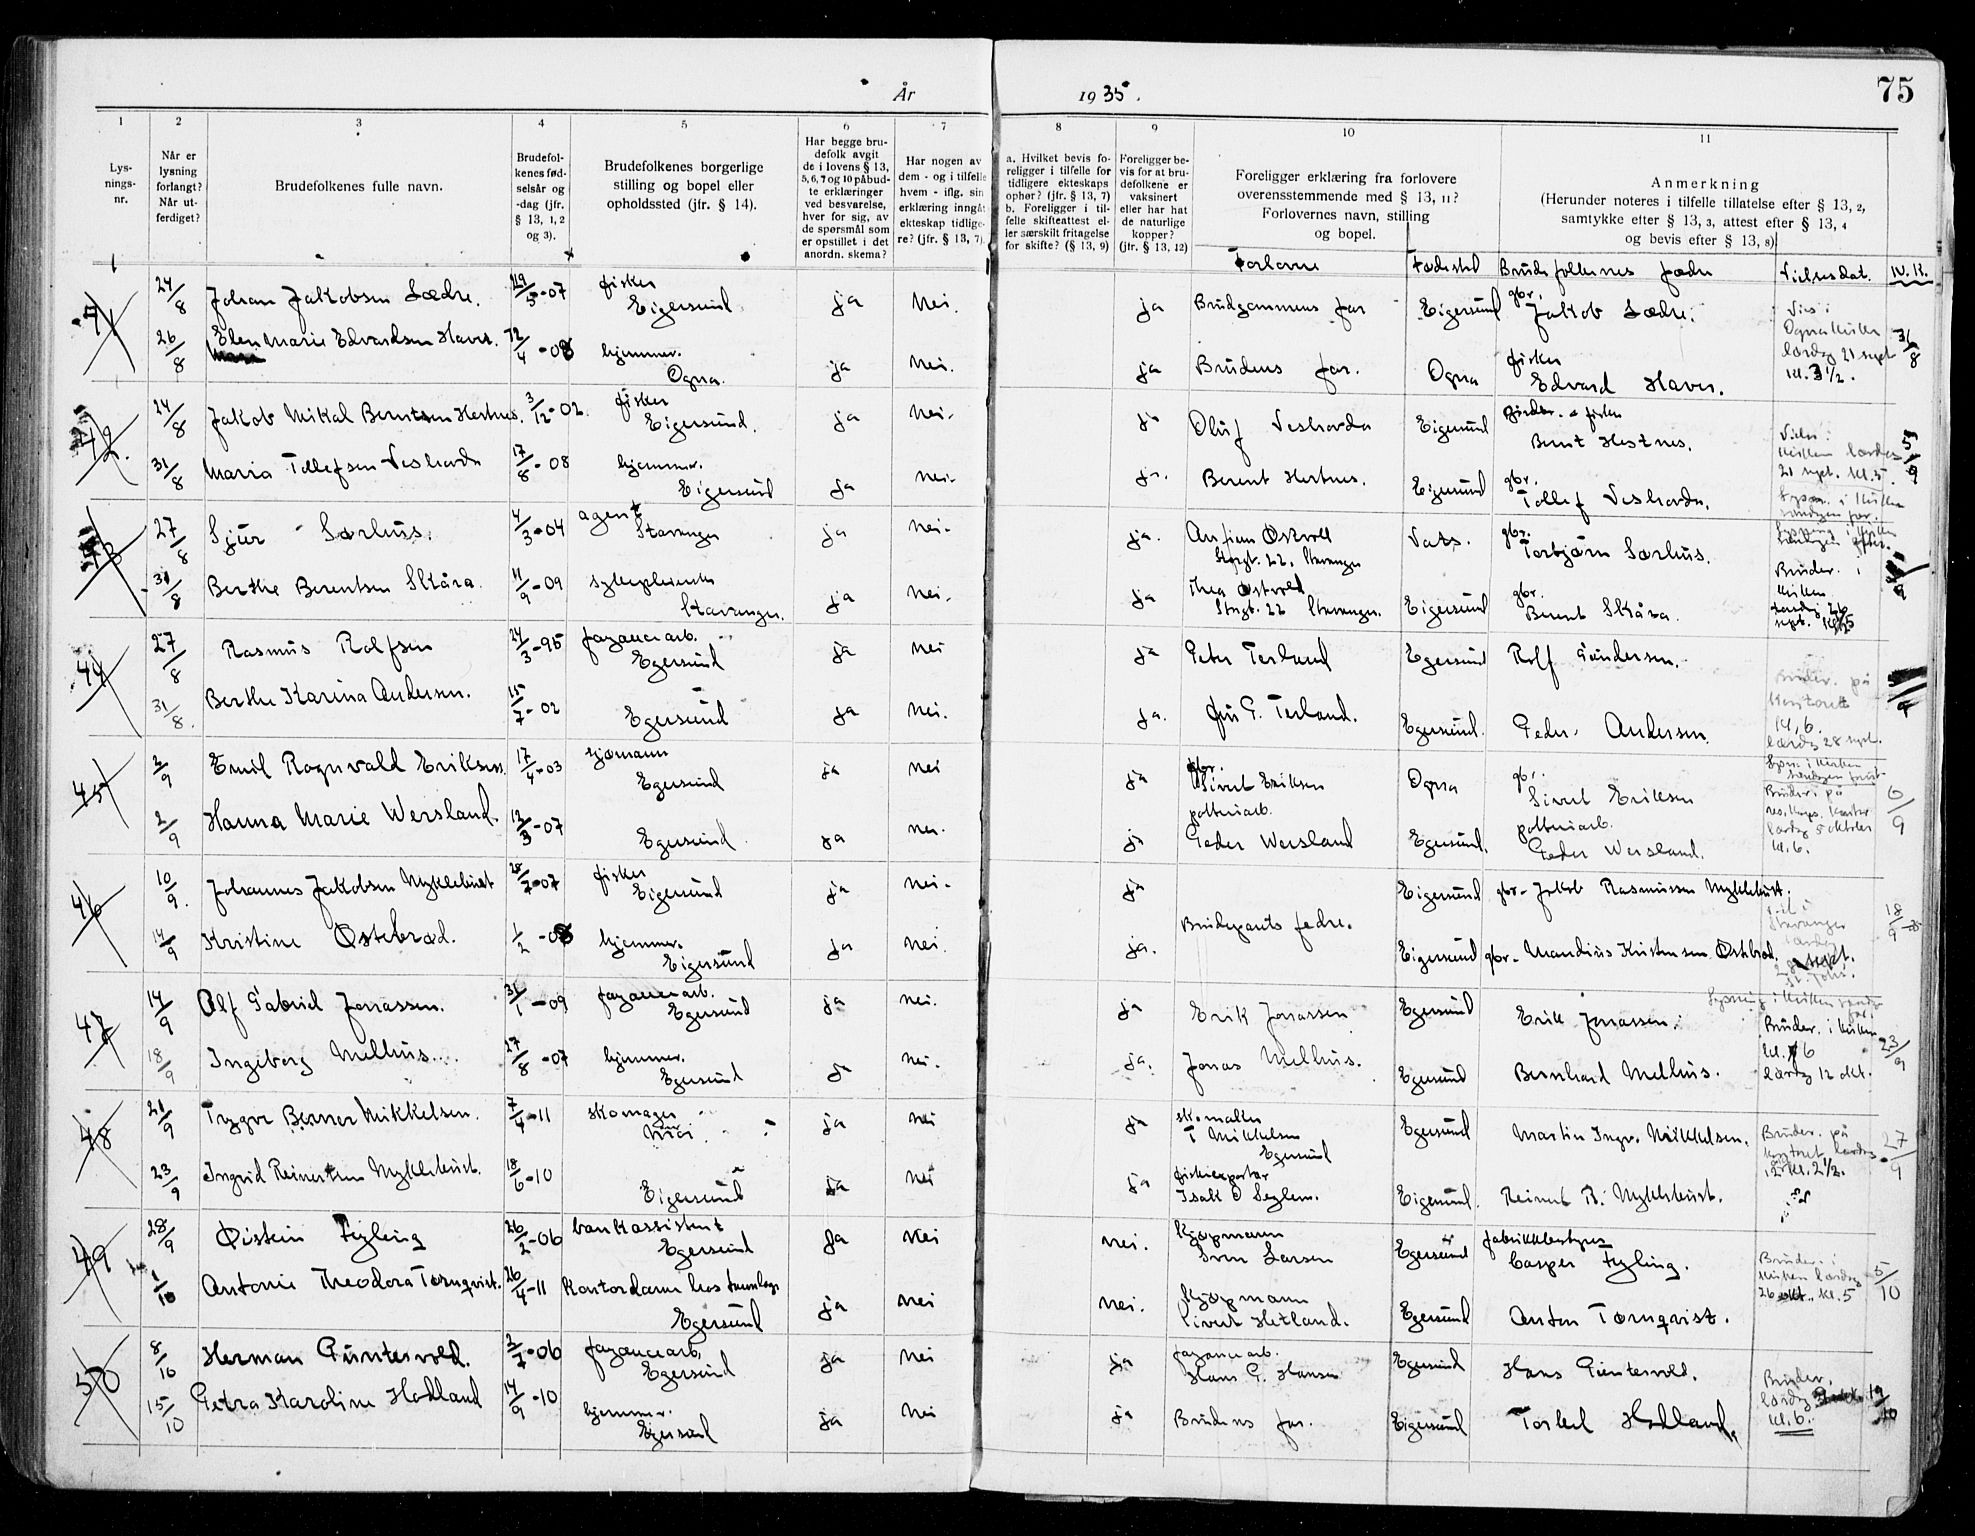 År 1935.
75
1 2 3 4 5 6 7 8 9 10 11
Lysnings-nr.
Når er lysning forlangt? Når utferdiget?
Brudefolkenes fulle navn.
Brudefolkenes fødselsår og -dag (jfr. § 13, 1, 2 og 3).
Brudefolkenes borgerlige stilling og bopel eller opholdssted (jfr. § 14).
Har begge brudefolk avgit de i lovens § 13, 5, 6, 7 og 10 påbudte erklæringer ved besvarelse, hver for sig, av de spørsmål som er opstillet i det anordn. skema?
Har nogen av dem - og i tilfelle hvem - iflg. sin erklæring inngåt ekteskap tidligere? (jfr. § 13, 7).
a. Hvilket bevis foreligger i tilfelle for tidligere ekteskaps ophør? (jfr. § 13, 7) b. Foreligger i tilfelle skifteattest eller særskilt fritagelse for skifte? (§ 13, 9)
Foreligger bevis for at brudefolkene er vaksinert eller har hat de naturlige kopper? (jfr. § 13, 12)
Foreligger erklæring fra forlovere overensstemmende med § 13, 11? Forlovernes navn, stilling og bopel.
Anmerkning (Herunder noteres i tilfelle tillatelse efter § 13, 2, samtykke efter § 13, 3, attest efter § 13, 4 og bevis efter § 13, 8)
Forlovere Fødested Brudefolkenes fedre Vielsesdat. N.K.
41 24/8 Johan Jakobsen Sædre. 29/5-07 fisker Eigersund ja Nei. ja Brudgommens far Eigersund gbr. Jakob Sædre.
26/8 Elen Marie Edvardsen Haver. 12/4-08 hjemmev. Ogna. ja Nei. ja Brudens far. Ogna fisker Edvard Haver.
Vies i Ogna kirke lørdag 21 sept kl. 3 1/2. 31/8
42. 24/8 Jakob Mikal Berntsen Hestnes. 3/12-02. fisker Eigersund. ja nei. ja Oluf Veshovda Eigersund gårdbr. & fisker Bernt Hestnes.
31/8 Maria Tollefsen Veshovde 17/8-08 hjemmev. Eigersund ja nei. ja. Berent Hestnes. Eigersund gbr. Tollef Veshovde.
Vies i kirken lørdag 21 sept. kl. 5. 5/9
43 27/8 Sjur Sørhus. 4/3-04 agent Stavanger ja nei. ja. Ansten Østvold Storgt. 22. Stavanger Vats. gbr. Torbjørn Sørhus.
31/8 Berthe Berentsen Skåra. 11/9-09 sykepleierske Stavanger. ja nei. ja Thea Østvold Storgt. 22 Stavanger. Eigersund gbr. Berent Skåra.
Brudev. i kirken
44 27/8 Rasmus Rolfsen 24/3-95 fayancearb. Egersund ja nei ja Peter Terland Egersund Rolf Gundersen.
31/8. Berthe Karina Andersen. 15/7-02 Egersund ja nei. ja. Terland. Egersund. Peder Andersen.
Brudev. på kontoret kl. 6. lørdag 28 sept.
45 2/9 Emil Rognvald Eriksen. 17/4-03 sjømann Egersund ja nei ja gbr. Sivert Eriksen Ogna gbr. Sivert Eriksen
2/9 Hanna Marie Wersland. 12/3-07 Egersund ja nei. ja potteriarb. Peder Wersland Egersund. potteriarb. Peder Wersland.
Brudev. på lørdag 5 oktober kl. 6. 6/9
46 10/9. Johannes Jakobsen Myklebust 28/7-07 fisker Eigersund ja nei. ja Eigersund gbr. Jakob Rasmussen Myklebust.
14/9 Kristine Østebrød. 1/2-08 hjemmev. Eigersund ja nei. ja. Brudeparets fedre. Eigersund gbr. Mandius Kristensen Østebrød.
18/9-35
47 14/9 Olf Gabriel Jonassen. 31/1-09 fayancearb. Egersund ja nei. ja Erik Jonassen Egersund Erik Jonassen.
18/9 Ingeborg Mellhus. 27/8-07 hjemmev. Egersund ja nei. ja. Jonas Mellhus. Egersund Bernhard Mellhus.
Brudev. i kirken kl. 6 lørdag 12 okt. 23/9
48 21/9 Trygve Berner Mikkelsen. 7/4-11 skomager ja nei ja skomaker T Mikkelsen Egersund Egersund Martin Ingv. Mikkelsen.
23/9 Ingrid Reinertsen Myklebust. 18/6-10 Eigersund ja nei ja fiskeexportør Isak O Seglem. Eigersund. Reinert R. Myklebust.
Brudev. på kontoret lørdag kl. 2 1/2. 27/9
49 28/9 Øistein Fyling 26/2-06 bankassistent Egersund ja nei nei. Kjøpmann Sven Larsen Egersund fabrikkbestyrer Casper Fyling.
1/10 Antonie Theodora Tornqvist. 26/4-11 Kontordame hos Egersund ja nei nei. Kjøpmann Sivert Hetland. Egersund Anton Tornqvist.
Brudev. i kirken lørdag 26 okt. kl. 5 5/10
50 8/10 Herman Puntervold. 2/7-06 fayancearb. Egersund ja nei ja fayancearb. Hans G. Hansen Egersund Hans Puntervold.
15/10 Petra Karoline Hodland 14/9-10 hjemmev. Egersund ja nei ja Brudens far. Eigersund Torleif Hodland.
Brudev. lørdag kl. 6. 19/10